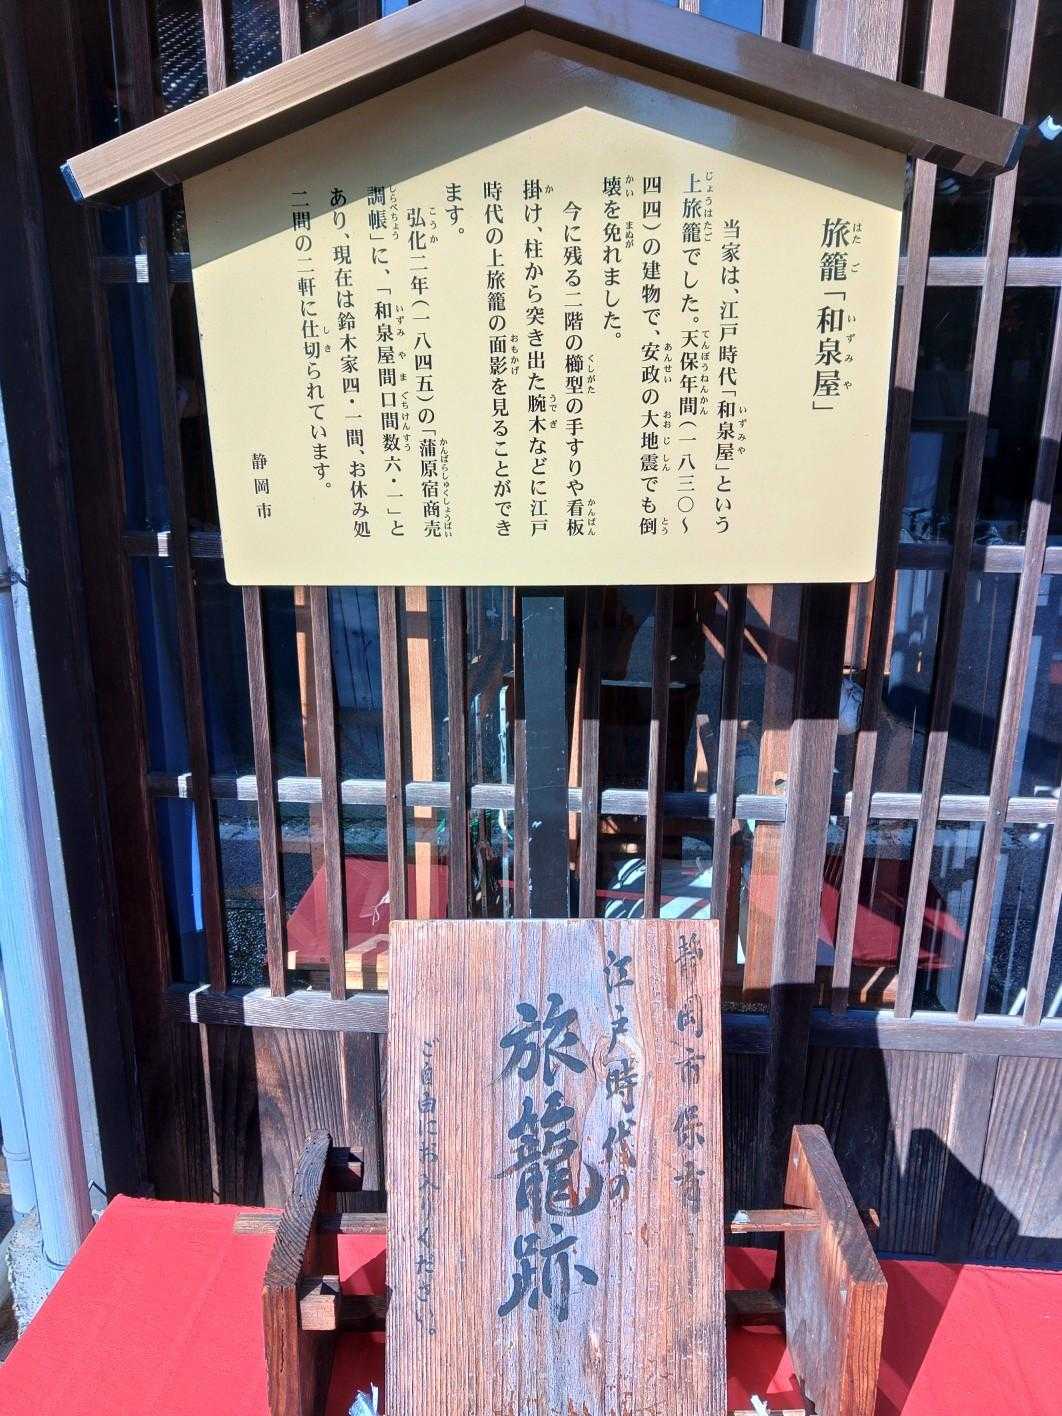 旅籠「和泉屋」
当家は、江戸時代「和泉屋」という
上旅籠でした。天保年間（一八三〇〜
四四）の建物で、安政の大地震でも倒
壊を免れました。
今に残る二階の櫛型の手すりや看板
掛け、柱から突き出た腕木などに江戸
時代の上旅籠の面影を見ることができ
ます。
弘化二年（一八四五）の「蒲原宿商売
調帳」に、「和泉屋間口間数六・一」と
あり、現在は鈴木家四・一間、お休み処
二間の二軒に仕切られています。
静岡市
静岡市保有
江戸時代の
旅籠跡
ご自由にお入りください。